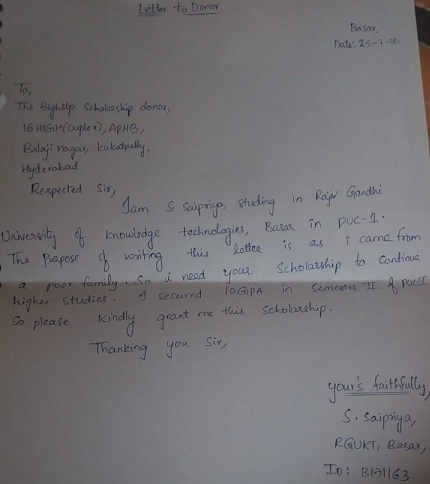 Letter to Donor
Basar,
Date: 25-7-18.
To,
The Bighelp Scholarship donor,
IGHIGH(Duplex), APHB,
Balaji nagar, kukatpally,
Hyderabad
Respected Sir,
Iam S Saipriya, studing in Rajiv Gandhi
University of knowledge technologies, Basar in PUC-1.
The Purpose of writing this letter is as i came from
a poor family. So i need your Scholarship to continue
higher studies. I secured 10GPA in Semester II of PUC-I
So please kindly grant me this scholarship.
Thanking you Sir,
your's faithfully,
S. Saipriya,
RGUKT, Basar,
ID: B171163